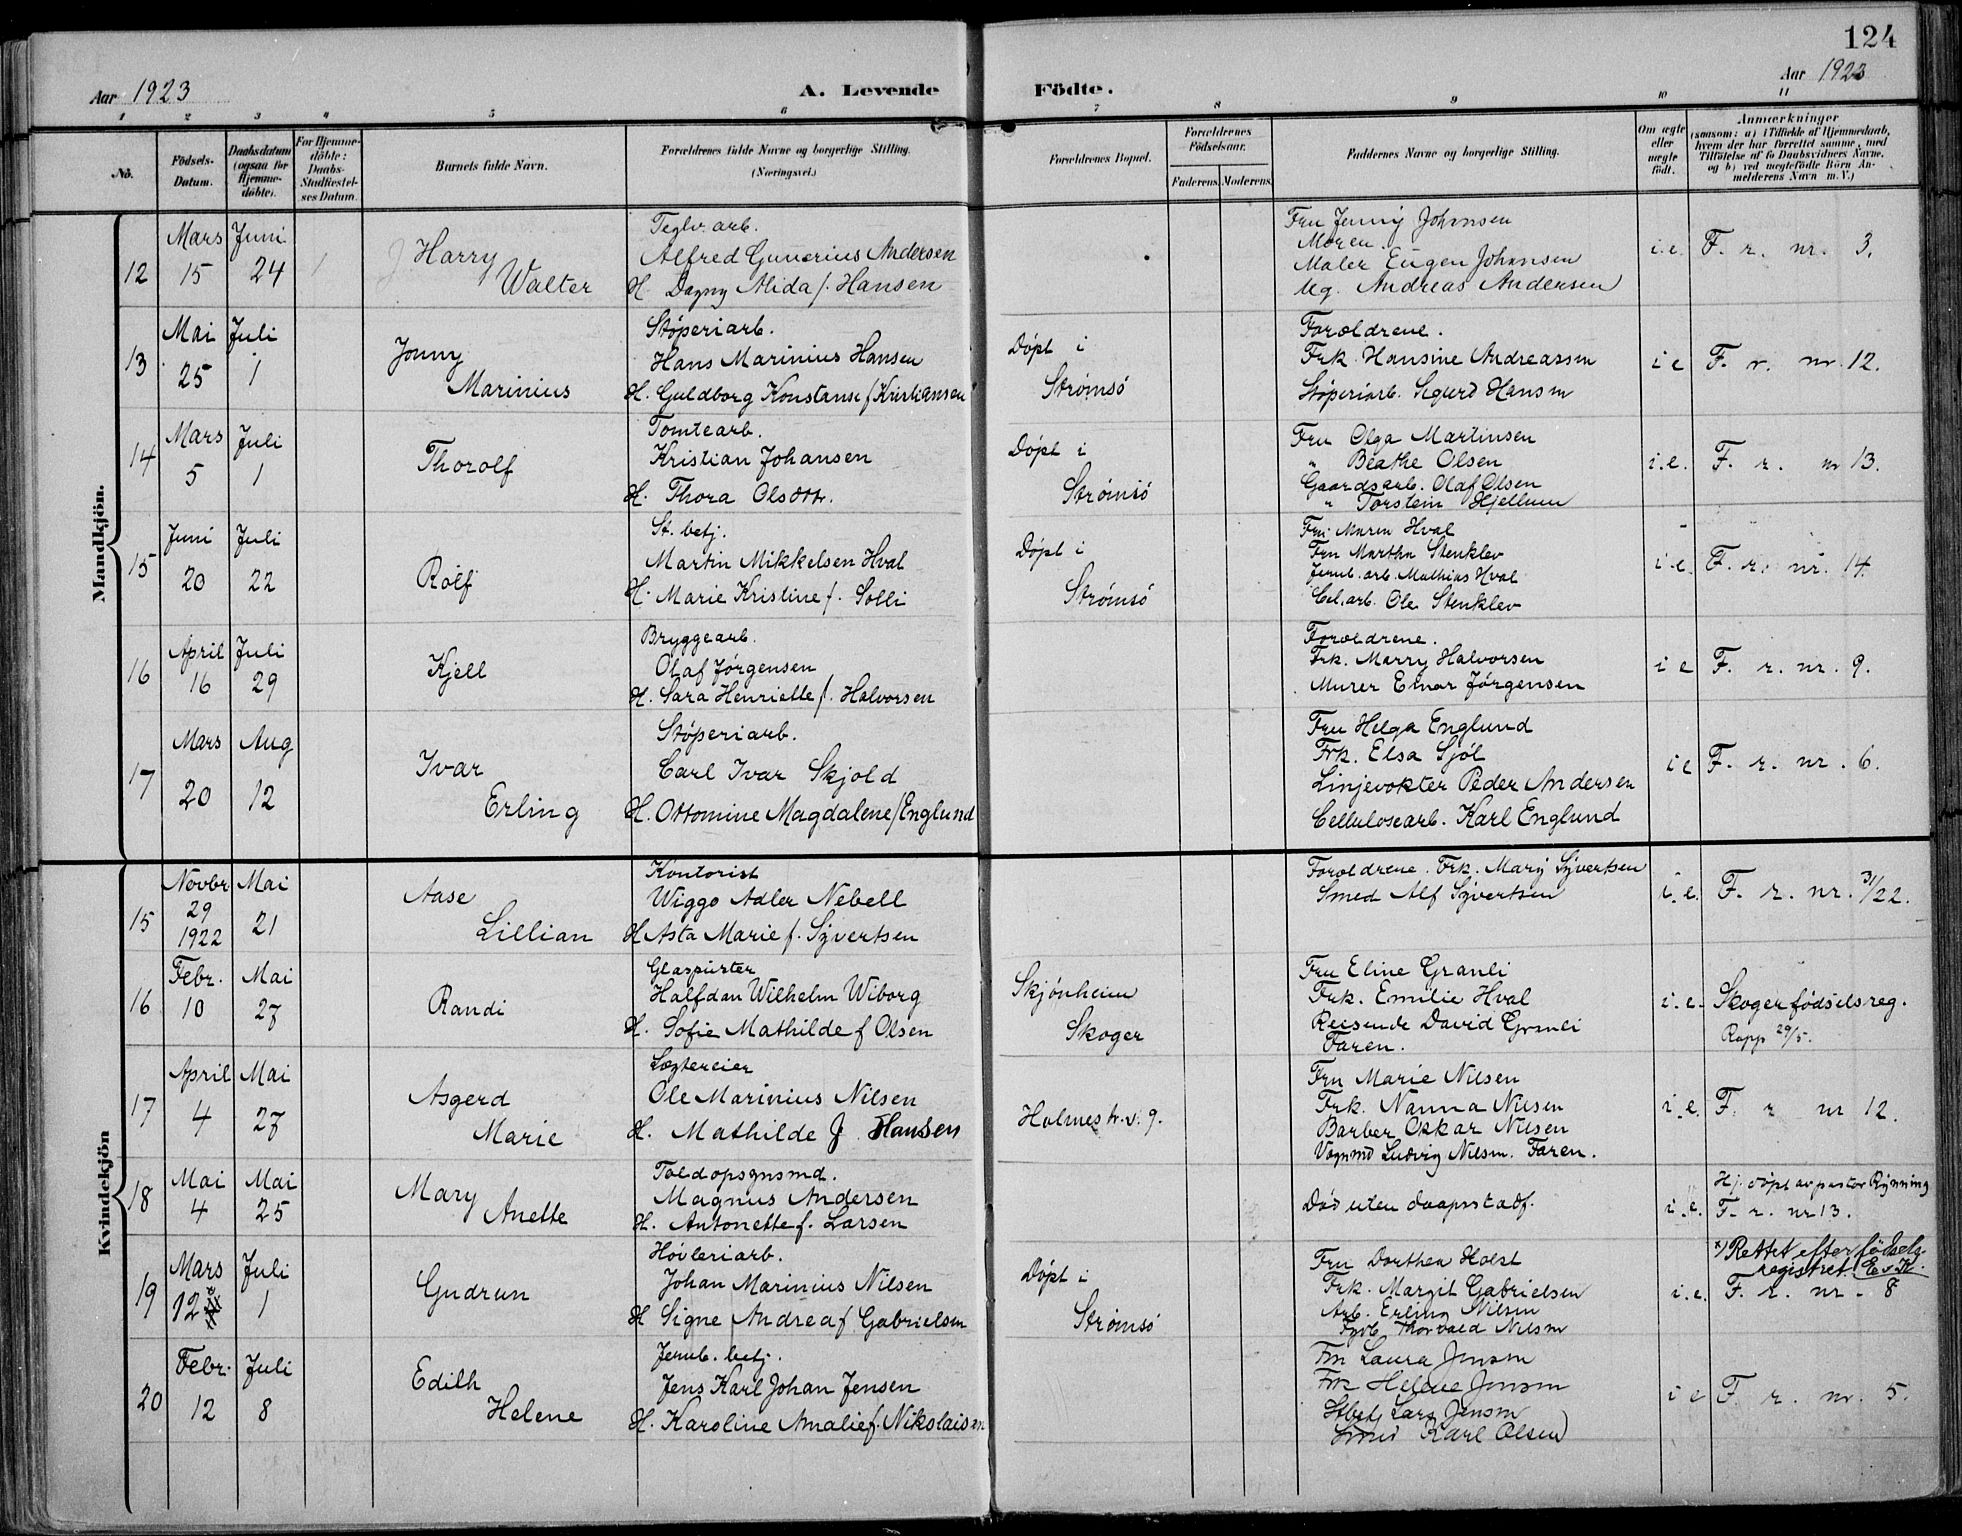 124
Aar 1923
A. Levende
Födte.
Aar 1923
1 2 3 4 5 6 7 8 9 10 11
No.
Födsels-
Datum.
Daabsdatum
(ogsaa for
Hjemme-
döbte).
For Hjemme-
döbte:
Daabs-
Stadfæstel-
ses Datum.
Barnets fulde Navn.
Forældrenes fulde Navne og borgerlige Stilling.
(Næringsvei.)
Forældrenes Bopæl.
Forældrenes
Födselsaar.
Faderens. Moderens.
Faddernes Navne og borgerlige Stilling.
Om ægte
eller
uægte
født.
Anmærkninger
(saasom: a) i Tilfælde af Hjemmedaab,
hvem der har forrettet samme, med
Tilföielse af to Daabsvidners Navne,
og b) ved uægtefödte Börn An-
melderens Navn m. V.)
Mandkjön.
12
Mars
15
Juni
24
Harry
Walter
Teglv. arb.
Alfred Gunerius Andersen
H. Dagny Alida f. Hansen
Fru Jenny Johnsen
Moren.
Maler Eugen Johnsen
Ug. Andreas Andersen
i.e.
F. r. nr. 3.
13
Mai
25
Juli
1
Jonny
Marinius
Støperiarb.
Hans Marinius Hansen
H. Guldborg Konstanse f Kristiansen
Döpt i
Strømsö
Forældrene.
Frk. Hansine Andreassen
Støperiarb. Sigurd Hansen
i e
F. r. nr. 12.
14
Mars
5
Juli
1
Thorolf
Tomtearb.
Kristian Johansen
H. Thora Olsdtr.
Döpt i
Strømsö
Fru Olga Martinsen
" Beathe Olsen
Gaardsarb. Olaf Olsen
" Torstein Hjellum
i.e.
F. r. nr 13.
15
Juni
20
Juli
22
Rolf
St. betj.
Martin Mikkelsen Hval
H. Marie Kristine f. Solli
Döpt i
Strømsö
Fru Maren Hval
Fru Martha Stenklev
Jernb. arb. Mathias Hval
Cel. arb. Ole Stenklev
i e.
F. r. nr. 14.
16
April
16
Juli
29
Kjell
Bryggearb.
Olaf Jørgensen
H. Sara Henriette f. Halvorsen
Forældrene.
Frk. Marry Halvorsen
Murer Einar Jörgensen
i e
F. r. nr. 9.
17
Mars
20
Aug
12
Ivar
Erling
Støperiarb.
Carl Ivar Skjold
H. Ottomine Magdalene f Englund
Fru Helga Englund
Frk. Elsa Sjöl
Linjevokter Peder Andersen
Cellulosearb. Karl Englund
i e
F. r. nr. 6.
Kvindekjön
15
Novbr
29
1922
Mai
21
Aase
Lillian
Kontorist
Wiggo Adler Nebell
H Asta Marie f. Syvertsen
Forældrene. Frk. Mary Syvertsen
Smed Alf Syvertsen
i.e.
F. r. nr. 31/22.
16
Febr.
10
Mai
27
Randi
Glaspuster
Halfdan Wilhelm Wiborg
H. Sofie Mathilde f Olsen
Skjönheim
Skoger
Fru Eline Granli
Frk. Emilie Hval
Reisende David Granli
Faren.
i.e.
Skoger fødselsreg.
Rapp 29/5.
17
April
4
Mai
27
Asgerd
Marie
Lægtereier
Ole Marinius Nilsen
H. Mathilde J. Hansen
Holmestr.v. 9.
Fru Marie Nilsen
Frk. Nanna Nilsen
Barber Oskar Nilsen
Vognmd Ludvig Nilsen. Faren.
i.e.
F. r nr 12.
18
Mai
4
Mai
25
Mary
Anette
Toldopsynsmd.
Magnus Andersen
H. Antonette f. Larsen
Död uten daapsstadf.
i.e.
Hj. döpt av pastor Rynning
F. r. nr 13.
19
Mars
12
Juli
1
Gudrun
Høvleriarb.
Johan Marinius Nilsen
H Signe Andrea f Gabrielsen
Döpt i
Strømsö
Fru Dorthea Holst
Frk. Margit Gabrielsen
Arb. Erling Nilsen
Fyrb. Thorvald Nilsen
i.e.
x) Rettet efter fødsels-
registret.
F. r. nr. 8
20
Febr.
12
Juli
8
Edith
Helene
Jernb. betj.
Jens Karl Johan Jensen
H. Karoline Amalie f. Nikolaisen
Fru Laura Jensen
Frk Helene Jensen
Stbetj Lars Jensen
Smed Karl Olsen
i e
F. r. nr. 5.